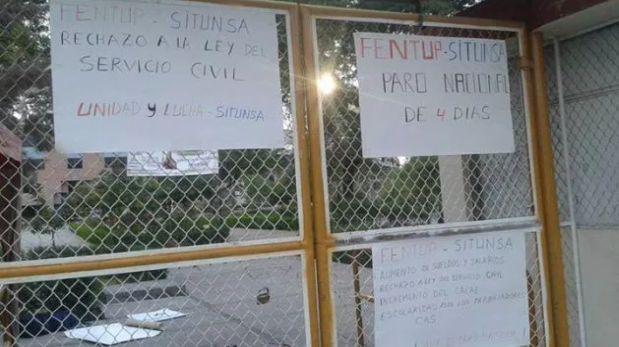 FENTUP - SITUNSA
RECHAZO A LA LEY DEL
SERVICIO CIVIL
UNIDAD y LUCHA - SITUNSA
FENTUP - SITUNSA
PARO NACIONAL
DE 4 DIAS
FENTUP - SITUNSA
- AUMENTO DE SUELDOS Y SALARIOS
RECHAZO A LEY DEL SERVICIO CIVIL
INCREMENTO DEL CAFAE
ESCOLARIDAD PARA LOS TRABAJADORES
CAS